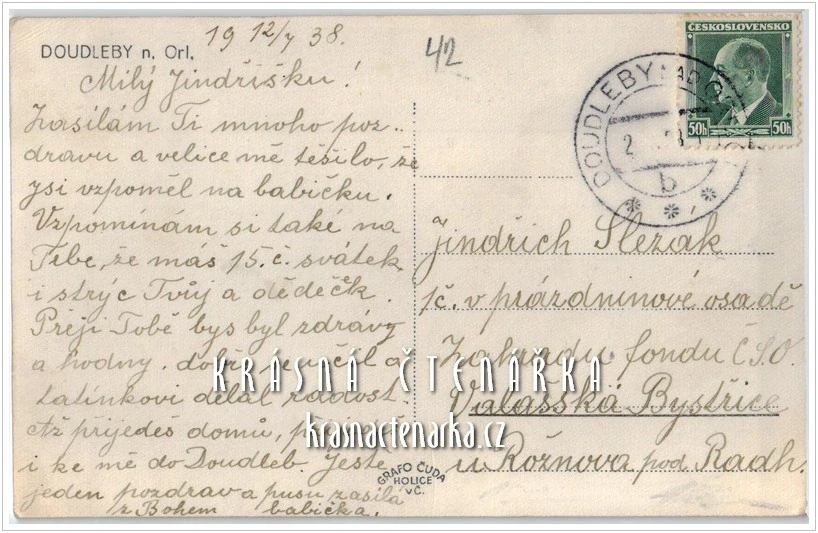 DOUDLEBY n. Orl.
19 12/7 38.
42
Milý Jindříšku!
Zasílám Ti mnoho poz..
dravu a velice mě těšilo, že
jsi vzpoměl na babičku.
Vzpomínám si také na
Tebe, že máš 15.č. svátek
i strýc Tvůj a dědeček.
Přeji Tobě bys byl zdráv
a hodny. dobře se učil a
tatínkovi dělal radost.
Až přijedeš domů,
i ke mě do Doudleb. Ještě
jeden pozdrav a pusu zasílá
z Bohem babička.
ČESKOSLOVENSKO
50h 50h
DOUDLEBY NAD
b
Jindřich Slezák
t.č. v prázdninové osadě
Zahradu fondu
Valašská Bystřice
u Rožnova pod Radh.
GRAFO ČUDA
HOLICE
v Č.
KRÁSNÁ ČTENÁŘKA
krasnactenarka.cz